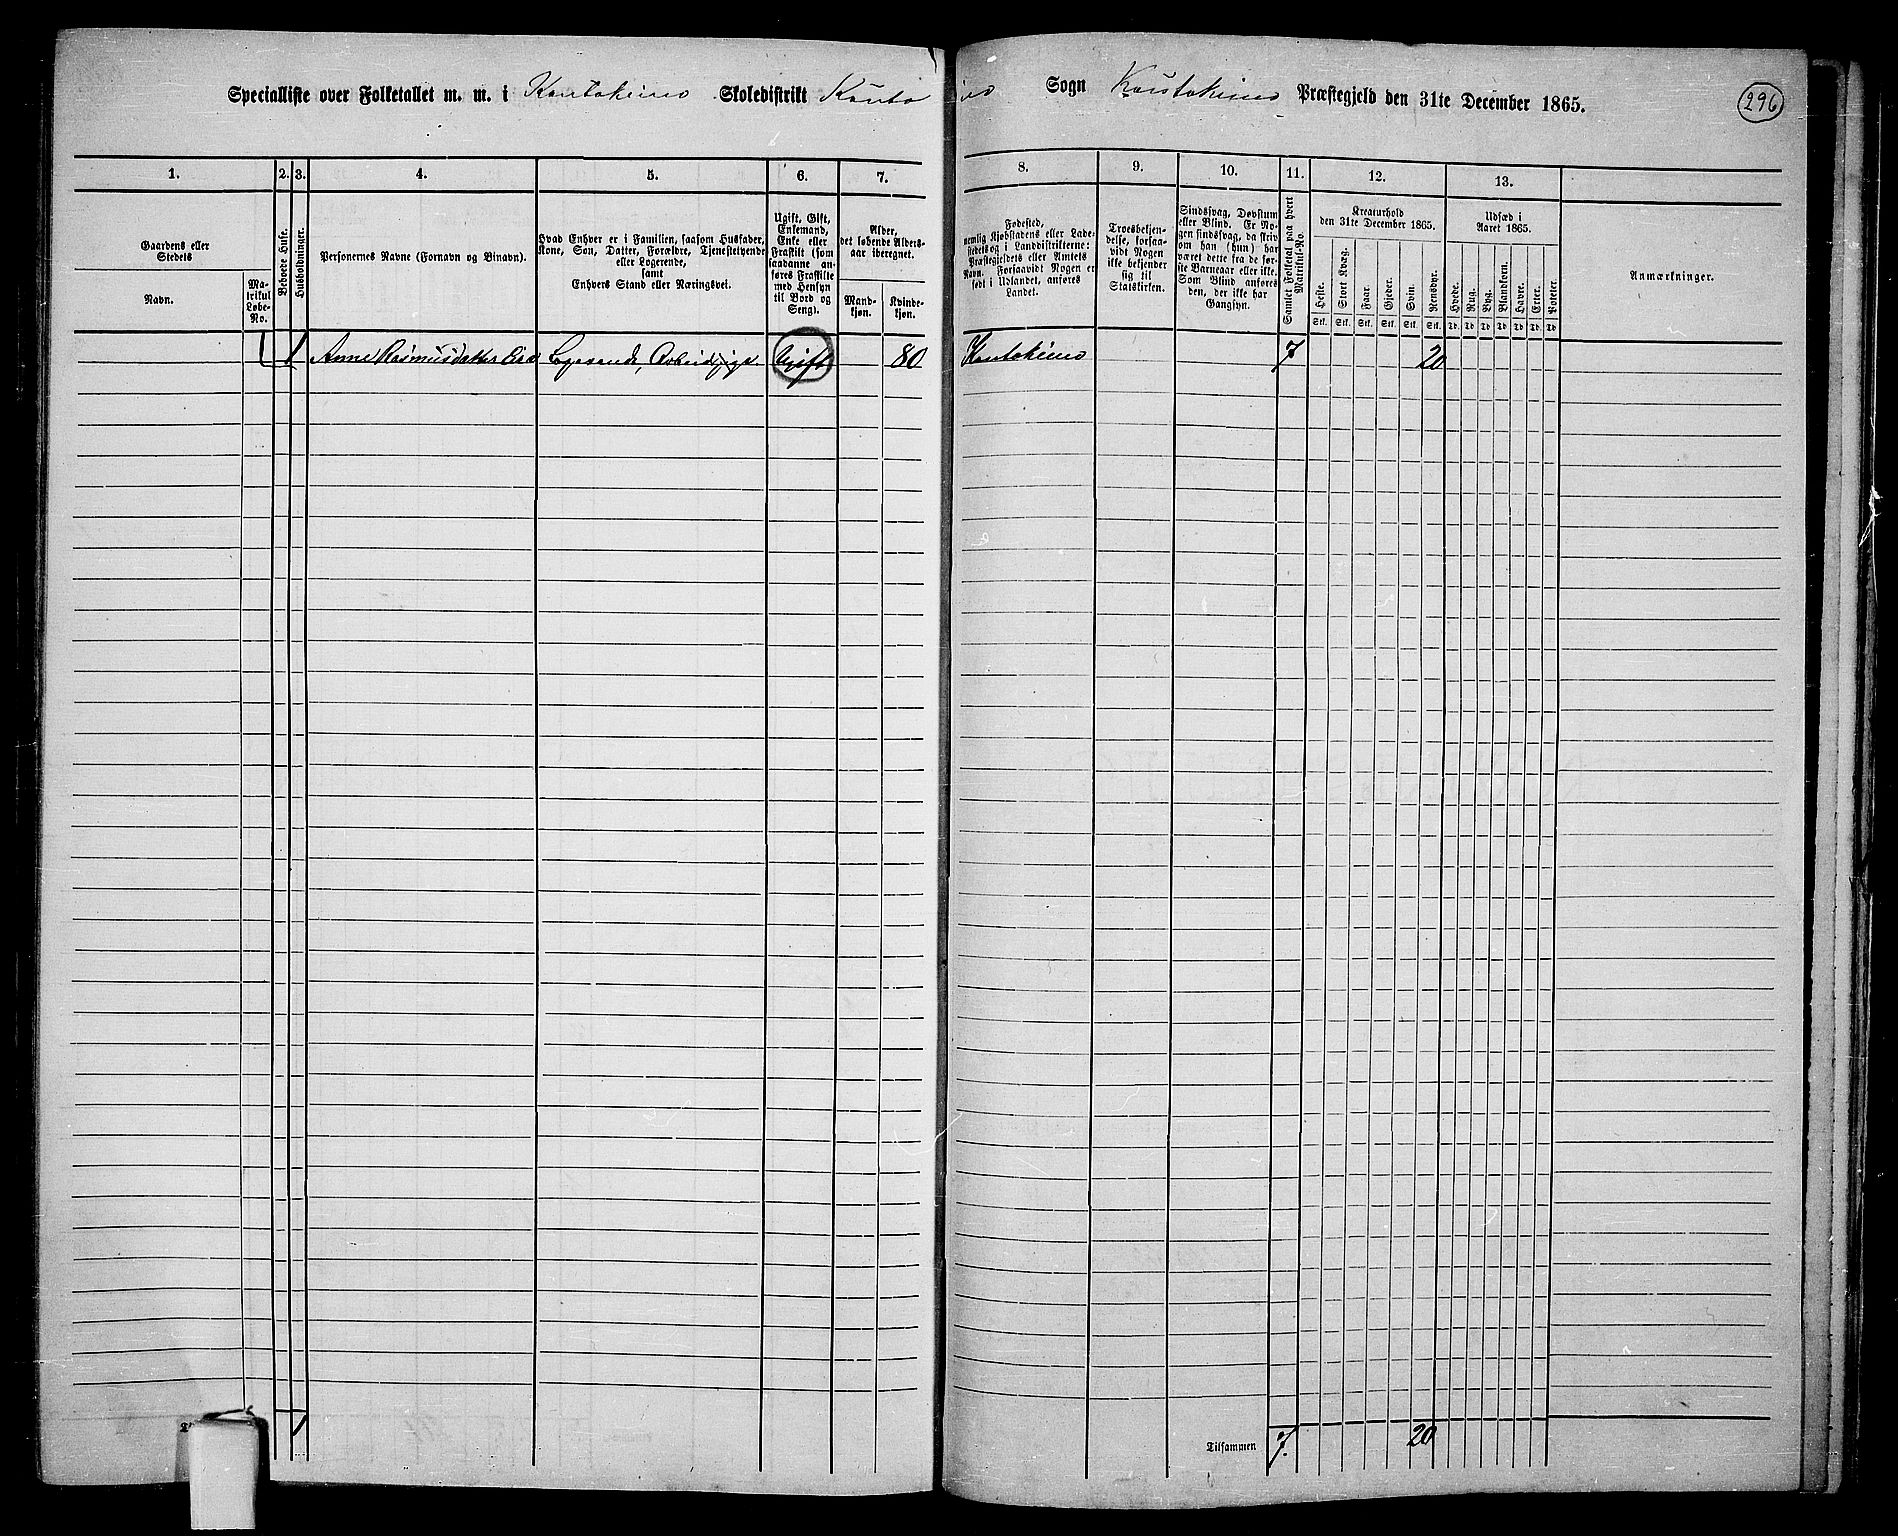 Specialliste over Folketallet m. m. i Koutokeino Skoledistrikt Kouto
Sogn Koutokeino Præstegjeld den 31te December 1865. 296
1. 2. 3. 4. 5. 6. 7. 8. 9. 10. 11. 12. 13.
Gaardens eller
Stedets
Navn.
Ma-
trikul
Løbe-
No.
Beboede Huse.
Husholdninger.
Personernes Navne (Fornavn og Binavn).
Hvad Enhver er i Familien, saasom Husfader,
Kone, Søn, Datter, Forældre, Tjenestetyende
eller Logerende,
samt
Enhvers Stand eller Næringsvei.
Ugift, Gift,
Enkemand,
Enke eller
Fraskilt (som
saadanne an-
føres Fraskilte
med Hensyn
til Bord og
Seng).
Alder,
det løbende Alders-
aar iberegnet.
Mand-
kjøn.
Kvinde-
kjøn.
Fødested,
nemlig Kjøbstadens eller Lade-
stedets og i Landdistrikterne:
Præstegjeldets eller Amtets
Navn. Forsaavidt Nogen er
født i Udlandet, anføres
Landet.
Troesbekjen-
delse, forsaa-
vidt Nogen
ikke bekjender
sig til
Statskirken.
Sindssvag, Døvstum
eller Blind. Er No-
gen sindssvag, da skriv
om han (hun) har
været dette fra de før-
ste Barneaar eller ikke.
Som Blind anføres
den, der ikke har
Gangsyn.
Samlet Folketal paa hvert
Matrikul-No.
Kreaturhold
den 31te December 1865.
Heste.
Stort Kvæg.
Faar.
Gjeder.
Svin.
Rensdyr.
Stk. Stk. Stk. Stk. Stk. Stk.
Udsæd i
Aaret 1865.
Hvede.
Rug.
Byg.
Blandkorn.
Havre.
Erter.
Poteter.
Td. Td. Td. Td. Td. Td. Td.
Anmærkninger.
1 Anne Rasmusdatter Eira Logerende, Ugift 80 Koutokeino 7 20
1 Tilsammen 7. 20